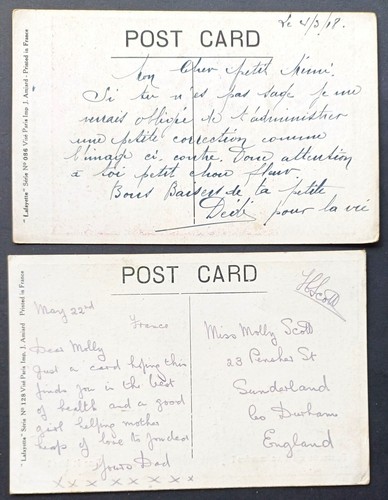 Le 4/3/18.
POST CARD
Mon Cher petit Mimi.
Si tu n'es pas sage je me
verrais obligée de t'administrer
une petite correction comme
l'image ci. contre. Donc attention
à toi petit chou fleur.
Bons Baisers de ta petite
Dédé pour la vie
"Lafayette" Série Nº 086 Visé Paris Imp. J. Amiard - Printed in France
POST CARD
H Scott
May 22nd
France
Dear Molly
Just a card hoping this
finds you in the best
of health and a good
girl helping mother
heaps of love to you dear
Yours Dad
x x x x x x x x
Miss Molly Scott
23 Pensher St
Sunderland
Co Durham
England
"Lafayette" Série Nº 128 Visé Paris Imp. J. Amiard Printed in France